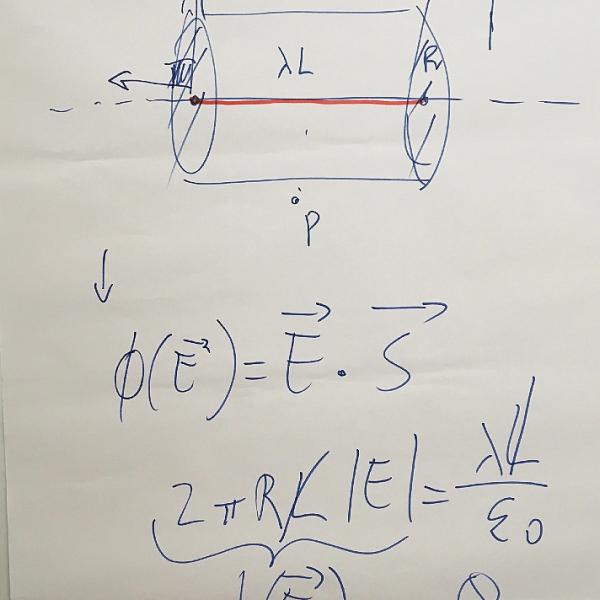 λL
R
P
ϕ(E⃗) = E⃗ · S⃗
2πRL |E| = λL / ε0